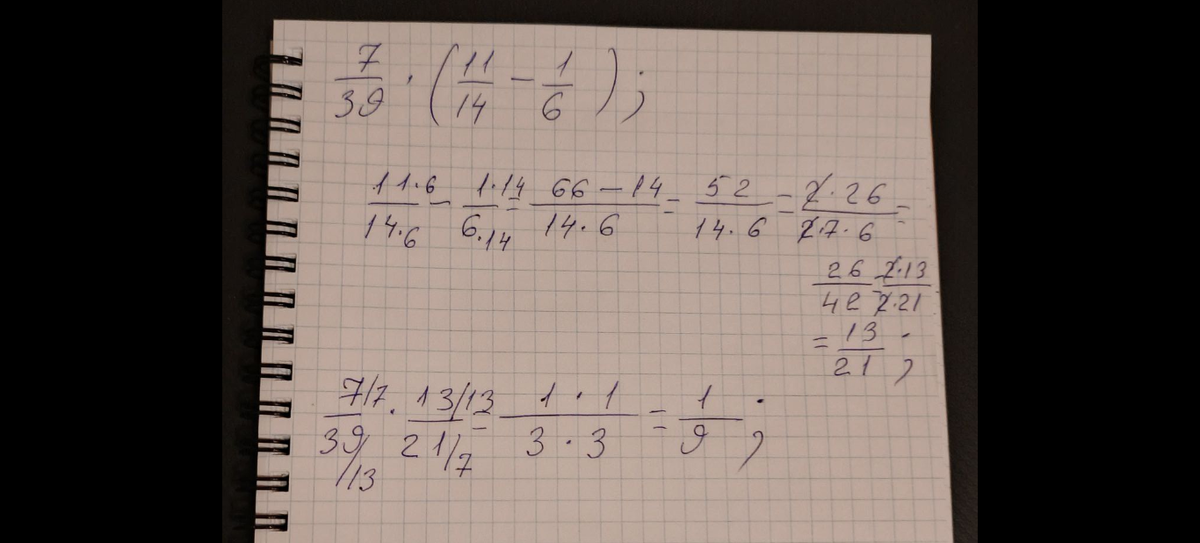 7/39 · (11/14 − 1/6);
11·6/14·6 − 1·14/6·14 = 66−14/14·6 = 52/14·6 = 2·26/2·7·6 =
26/42 = 2·13/2·21
= 13/21;
7/7/39/13 · 13/13/21/7 = 1·1/3·3 = 1/9;